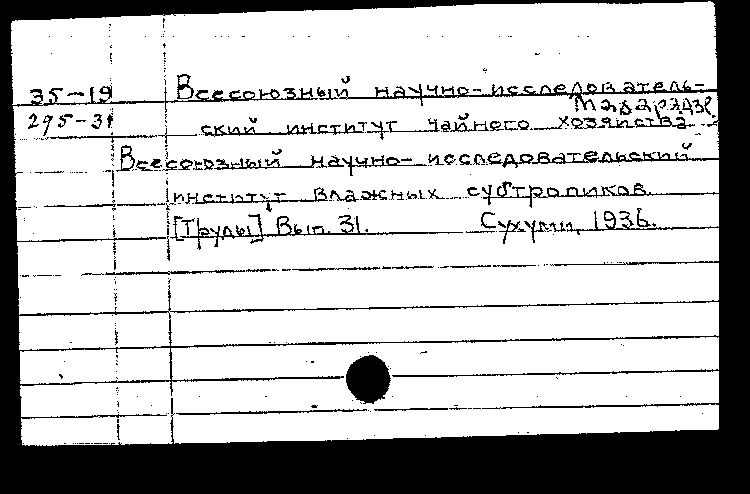 35-19 Всесоюзный научно-исследователь-
295-31 ский институт чайного хозяйства
Всесоюзный научно-исследовательский
институт влажных субтропиков.
[Труды] Вып. 31. Сухуми, 1936.